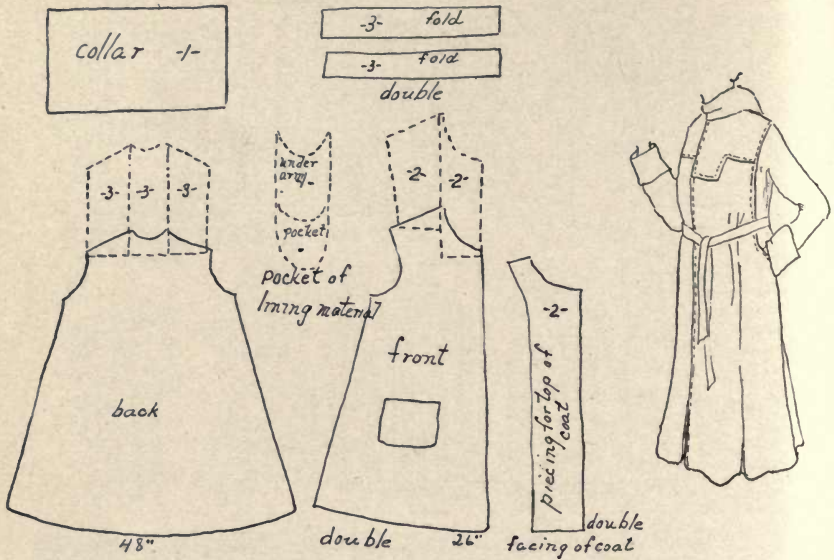 collar -1-
-3- fold
-3- fold
double
-3- -3- -3-
under
arm
pocket
pocket of
lining material
-2- -2-
front
back
-2-
piecing for top of
coat
48"
double
26"
double
facing of coat